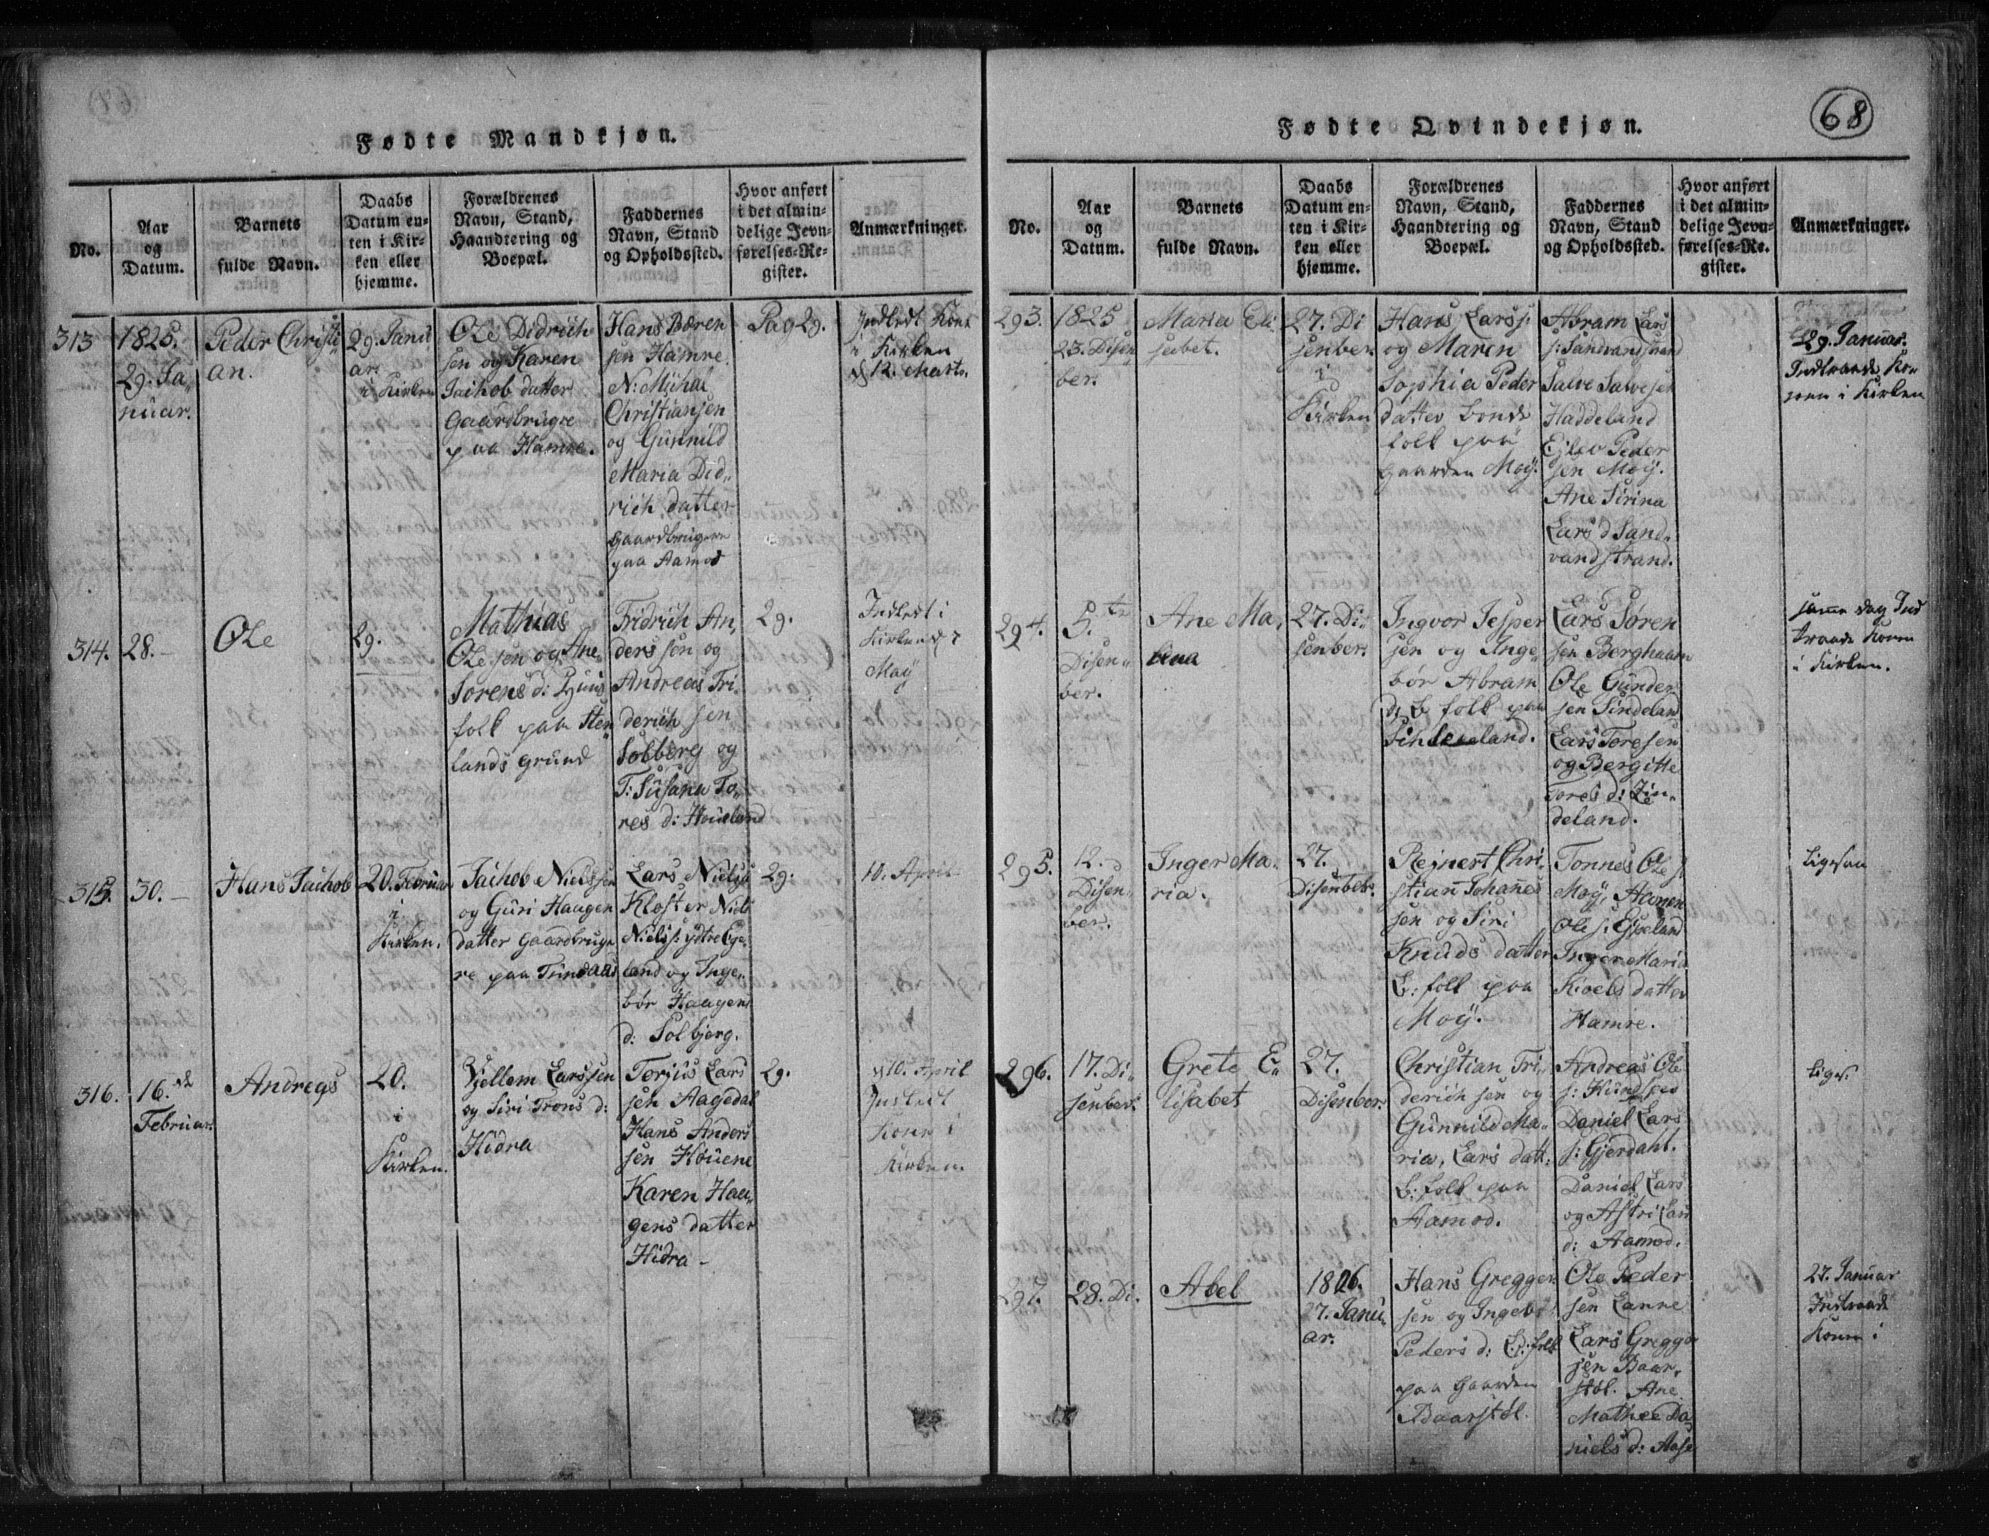 68
Fødte Mandkjøn.
No.
Aar
og
Datum.
Barnets
fulde Navn.
Daabs
Datum en-
ten i Kir-
ken eller
hjemme.
Forældrenes
Navn, Stand,
Haandtering og
Boepæl.
Faddernes
Navn, Stand
og Opholdssted.
Hvor anført
i det almin-
delige Jevn-
førelses-Re-
gister.
Anmærkninger.
313
1825.
29. Ja„
nuar.
Peder Christi„
an.
29. Janu
ar.
i Kirken
Ole Didrich
sen og Karen
Jachob datter
Gaardbrugre
paa Hamre.
Hans Bæren
sen Hamre
N: Michal
Christiansen
og Gunnild
Maria Did„
rich datter
Gaardbrugere
paa Aamod
Pag 29.
Indledt Kone
i Kirken
d 12. Marts.
314.
28.
Ole
29.
Mathias
Olesen og Ane„
Sørens d: Huus
folk paa Sten„
lands grund
Fridrich An„
ders sen og
Andreas Fri„
derich sen
Solberg og
T: Susana To„
res d: Houeland
29.
Indledt i
Kirken d 7
May
315.
30.
Hans Jachob
20. Februar
i
Kirken.
Jachob Nielssen
og Guri Haagen
datter Gaardbruge
re paa Trindaas
Lars Niels s
Kloster Niels
Niels s: ydtre Ege„
land og Inge„
bør Haagens
d: Solbjerg.
29.
10. April
316.
16. de
Februar.
Andreas
20.
i
Kirken.
Vjellem Larssen
og Siri Trons d:
Hidra
Torjus Lars
sen Aagedal
Hans Anders
sen Houene
Karen Haa„
gens datter
Hidra
29.
d 10. April
Indledt
Kone i
Kirken.
Fødte Qvindekjøn.
No.
Aar
og
Datum.
Barnets
fulde Navn.
Daabs
Datum en-
ten i Kir-
ken eller
hjemme.
Forældrenes
Navn, Stand,
Haandtering og
Boepæl.
Faddernes
Navn, Stand
og Opholdssted.
Hvor anført
i det almin-
delige Jevn-
førelses-Re-
gister.
Anmærkninger.
293.
1825
23. Disen
ber.
Maria Eli
sabet.
27. Di
senber
i
Kirken
Hans Lars s:
og Maren
Sophia Peder
datter bonde
folk paa
Gaarden Moy.
Abram Lars
s: Sandvandstrand
Salve Salvesen
Haddeland
Ejlev Peder
sen Moy.
Ane Sirina
Lars d Sand„
vandstrand.
29. Januar
Indtraade Ko„
nen i Kirken
294.
5. te
Disen„
ber.
Ane Ma„
27. Di„
senber.
Ingvor Jesper
sen og Inge„
bør Abram
d: b. folk paa
Lars Søren
sen Berghaam
Ole Gunder
sen Sindeland
Lars Toresen
og Bergitte
Tores d: Zin„
deland.
samme dag Ind
traade Konen
i Kirken.
295.
12.
Disen„
ber.
Inger Ma„
ria.
27.
Disenber.
Rejnert Chri„
stian Johanes
sen og Siri
Knuds datter
b: folk paa
Moy.
Tonnes Ole s.
Moy, Aanen
Ole s: Egeland
Inger Maria
datter
Hamre.
Ligesaa
296.
17. Di„
senber.
Grete E„
lisabet
27.
Disenber.
Christian Fri„
derich sen og
Gunnild Ma„
ria, Lars datt:
b: folk paa
Aamod.
Andreas Ole
s:
Daniel Lars
s: Gjerdahl.
Daniel Lars
og Astri Lars
d: Aamod.
Liges.
297.
28. Di.
Abel
1826.
27. Janu„
ar.
Hans Gregger
sen og Ingebr
Peders d: b: folk
paa Gaarden
Baarstøl.
Ole Peder
sen Lanne
Lars Gregger
sen Baar„
støl. Ane
Mathea Da„
niels d: Aase
27. Januar
Indtraade
Konen i